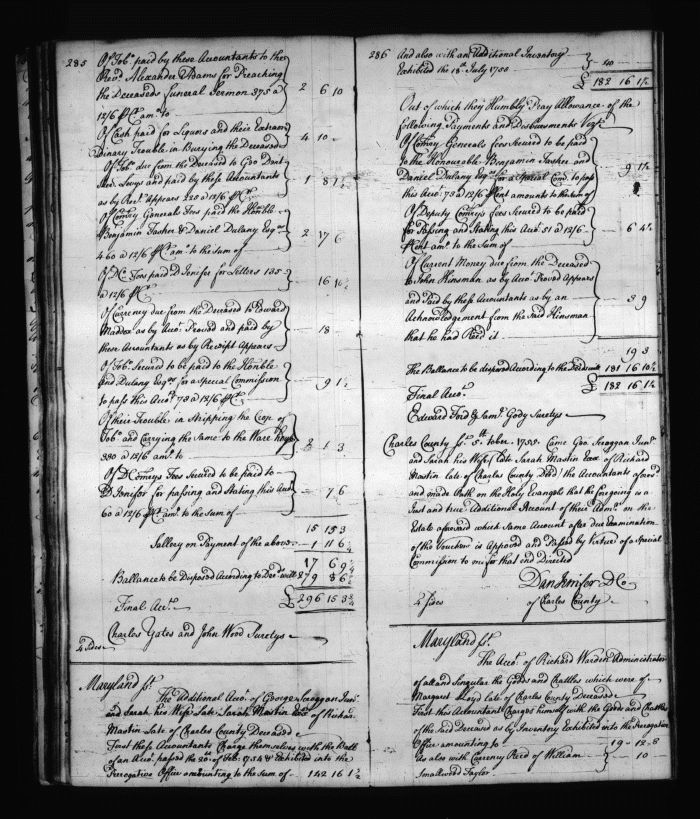 285 Of Tobo. paid by these Accountants to the
Revd. Alexander Adams for Preaching
the Deceaseds funeral Sermon 375 a 2 6 10
12/6 P Ct. amo. to
Of Cash paid for Liquors and their Extraor
dinary Trouble in Burying the Deceased 4 10 -
Of Tobo. due from the Deceased to Geo Dent
and paid by these Accountants 1 8 1½
as by Rect. Appears 225 a 12/6 P Ct.
Of Comry Generals Fees paid the Honble.
Benjamin Tasker & Daniel Dulany Esqrs. 2 17 6
460 a 12/6 P Ct. amo. to the sum of
Of DC. Fees paid D Jenifer for Letters 135 16 10½
a 12/6 P Ct.
Of Currency due from the Deceased to Edward
Maddox as by Acco. Proved and paid by 18
these Accountants as by Receipt Appears
Of Tobo. Secured to be paid to the Honble
and Dulany Esqrs. for a Special Commission 9 1½
to pass this Acco. 73 a 12/6 P Ct.
Of their Trouble in Stripping the Crop of
Tobo. and Carrying the same to the Ware house 2 1 3
330 a 12/6 amo. to
Of D Comrys Fees Secured to be paid to
D Jenifer for passing and Stating this Acct 7 6
60 a 12/6 P Ct. amo. to the sum of
15 15 3
Sallery on Payment of the above 1 11 6¼
17 6 9¼
Ballance to be Disposed According to Decds. will 279 8 6½
Final Acct. £296 15 3¾
Charles Yates and John Wood Suretys
4 Sides
Maryland ss.
The Additional Acco. of George Scroggan Junr.
and Sarah his Wife Late Sarah Mastin Exx. of Richard
Mastin Late of Charles County Deceased
First these Accountants Charge themselves with the Ball
of an Acco. passed the 20 of Feb. 1754 & Exhibited into the
Prerogative Office amounting to the Sum of 142 16 1½
286 And also with an Additional Inventory 40
Exhibited the 18th. July 1755
£ 182 16 1½
Out of which they Humbly Pray Allowance of the
following Payments and Disbursements Vizt.
Of Comry Generals fees Secured to be paid
to the Honourable Benjamin Tasker and
Daniel Dulany Esqrs. for a Special Com. to pass 9 1½
this Acco. 73 a 12/6 P Cent amounts to the sum of
Of Deputy Comrys Fees Secured to be paid
for Passing and Stating this Acco. 51 a 12/6 6 4½
P Cent amo. to the Sum of
Of Current Money due from the Deceased
to John Hinsman as by Acco. Proved Appears
and Paid by these Accountants as by an 3 9
Acknowledgement from the said Hinsman
that he had Recd it
19 3
The Ballance to be disposed According to the Deeds will 181 16 10½
Final Acco. £ 182 16 1½
Edward Ford & Saml. Gody Suretys
Charles County ss. 5th. tober. 1755. Came Geo Scroggan Junr.
and Sarah his Wife Late Sarah Mastin Exx of Richard
Mastin late of Charles County Decd. the Accountants aforesd
and made Oath on the Holy Evangels that the Foregoing is a
Just and true Additional Account of their Admn. on the
Estate aforesaid which Same Account after due Examination
of the Vouchers is Approved and Passed by Virtue of a Special
Commission to me for that end Directed
Dan Jenifer DC
4 Sides of Charles County
Maryland ss.
The Acco. of Richard Warden Administrator
of all and Singular the Goods and Chattles which were of
Margaret Lloyd late of Charles County Deceased
First this Accountant Charges himself with the Goods and Chattles
of the Said Deceased as by Inventory Exhibited into the Prerogative
Office amounting to 19 - 12 - 6
As also with Currency Recd of William 10
Smallwood Taylor